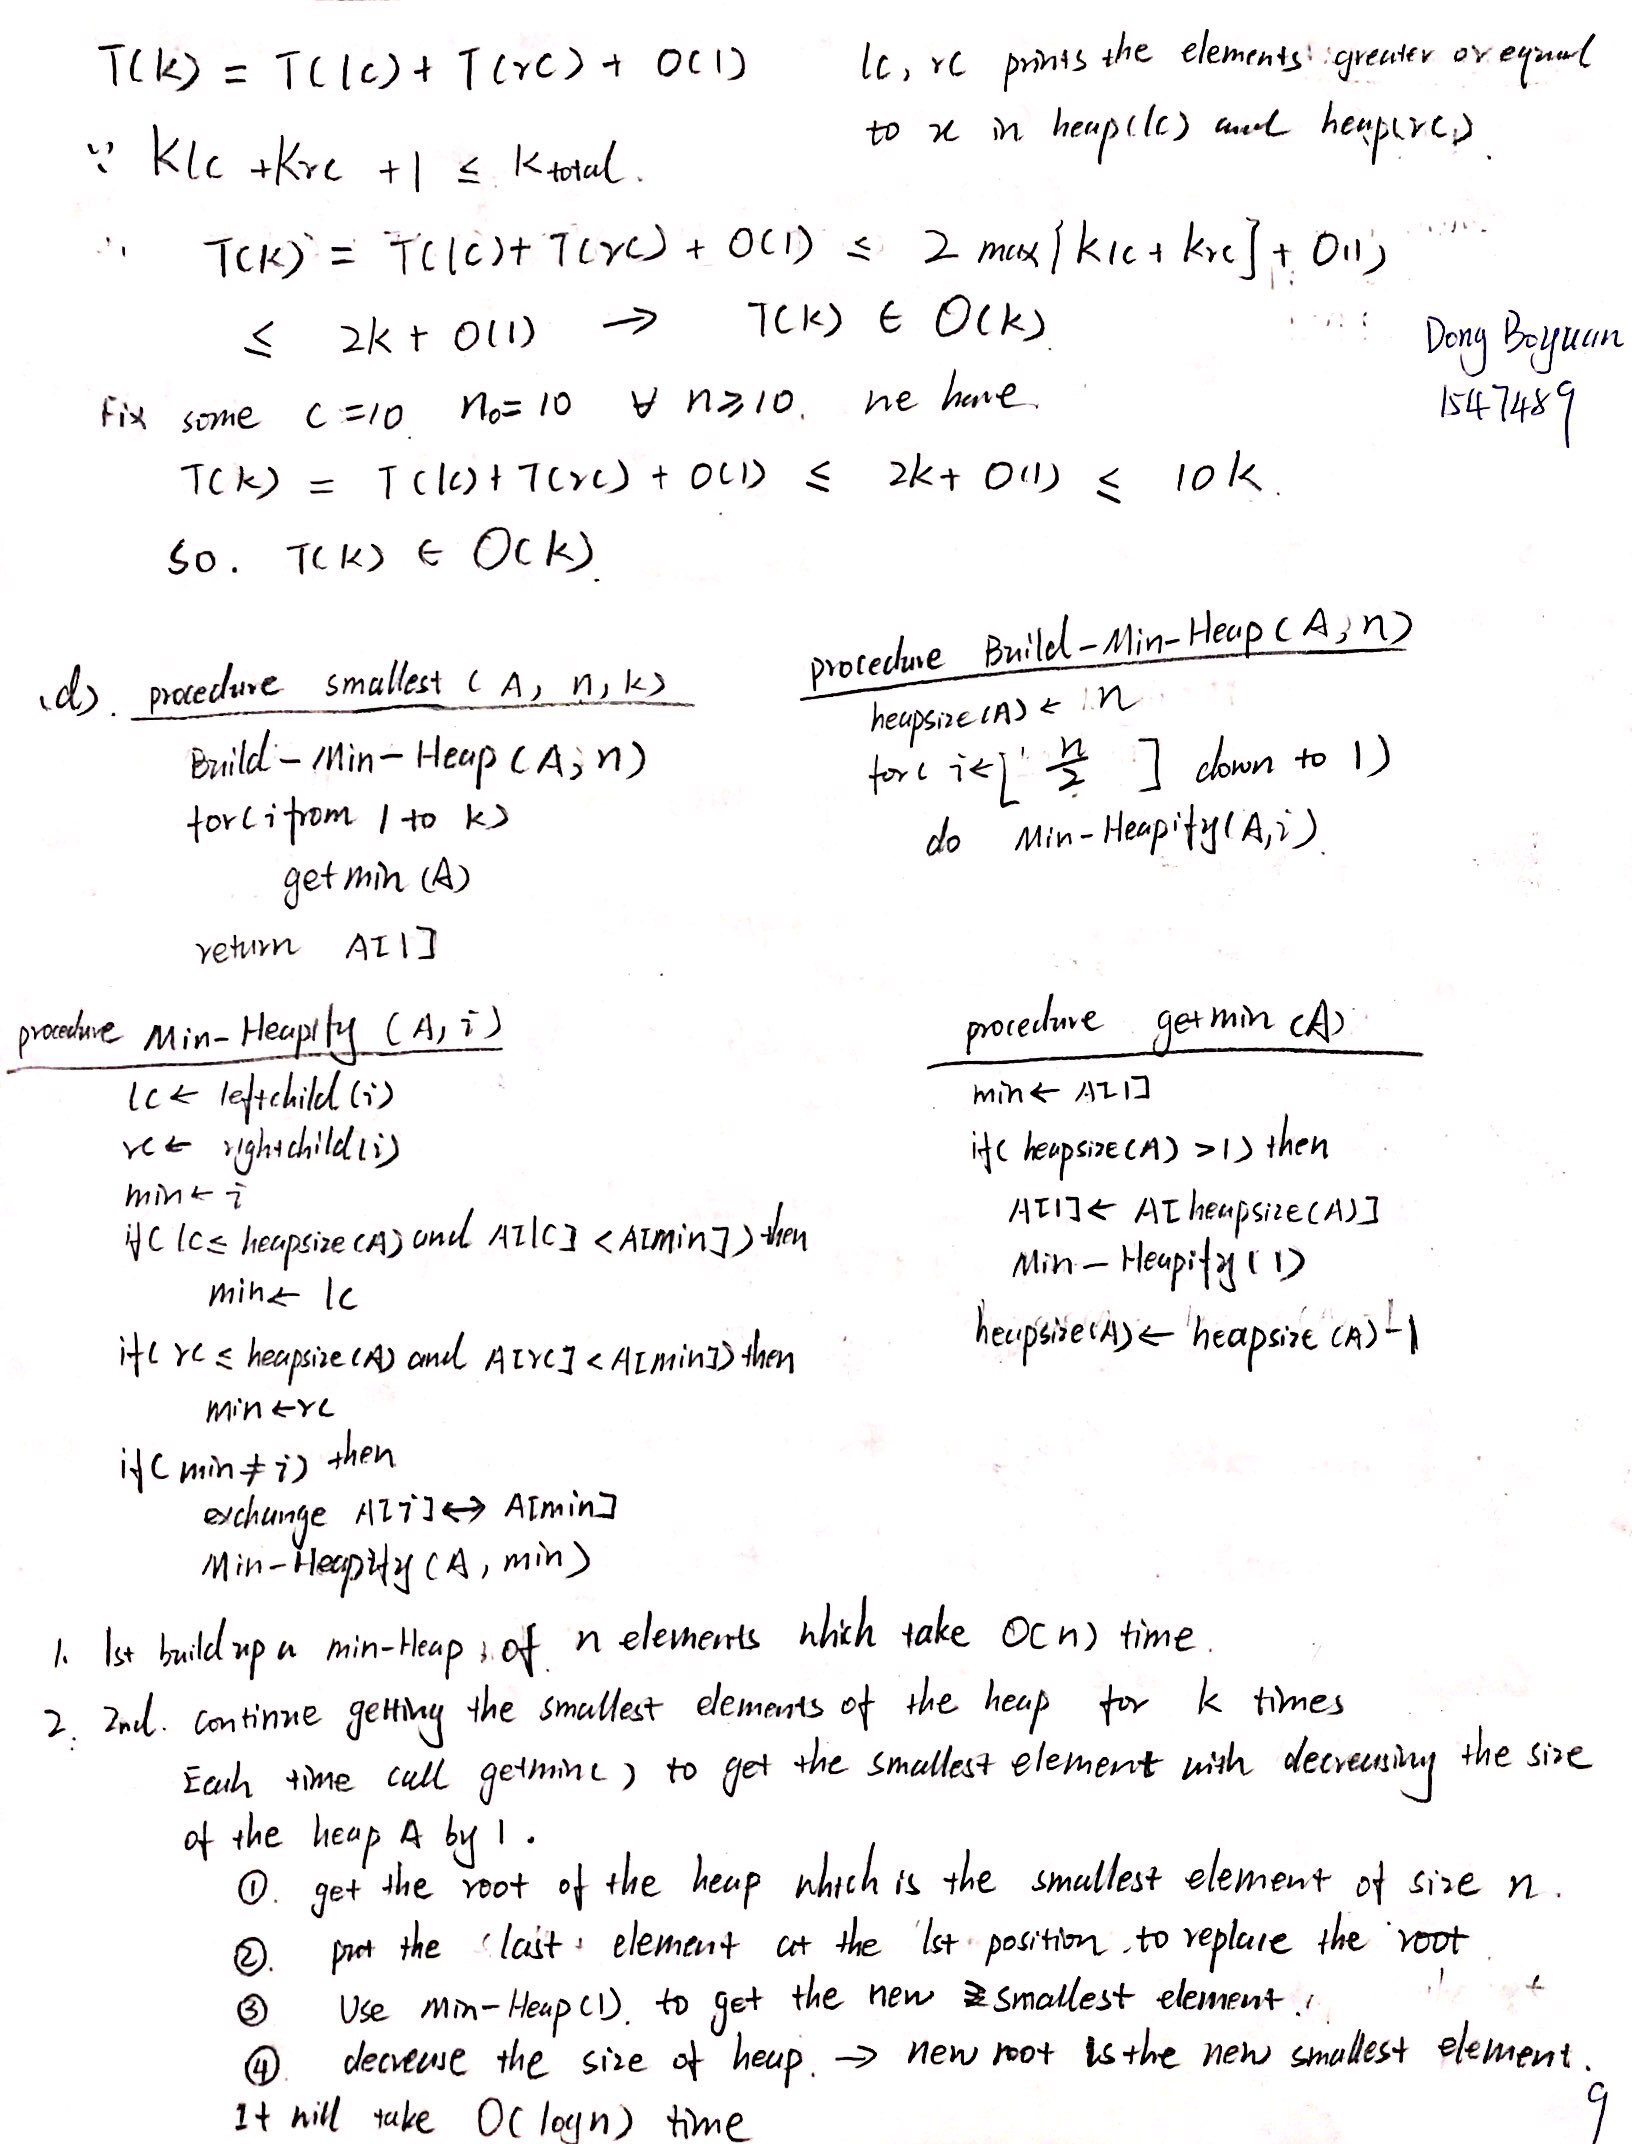 T(k) = T(lc) + T(rc) + O(1)
lc, rc prints the elements greater or equal
to x in heap(lc) and heap(rc).
∵ Klc + Krc + 1 ≤ K total.
∴ T(k) = T(lc) + T(rc) + O(1) ≤ 2 max{klc + krc} + O(1)
≤ 2k + O(1) → T(k) ∈ O(k)
Dong Boyuan
1547489
Fix some c = 10 n₀ = 10 ∀ n ≥ 10. we have
T(k) = T(lc) + T(rc) + O(1) ≤ 2k + O(1) ≤ 10k.
So. T(k) ∈ O(k).
(d). procedure smallest (A, n, k)
Build-Min-Heap (A; n)
for (i from 1 to k)
getmin (A)
return A[1]
procedure Build-Min-Heap (A; n)
heapsize(A) ← n
for( i ← ⌊ n/2 ⌋ down to 1)
do Min-Heapify(A, i).
procedure Min-Heapify (A, i)
lc ← leftchild (i)
rc ← rightchild (i)
min ← i
if( lc ≤ heapsize (A) and A[lc] < A[min]) then
min ← lc
if( rc ≤ heapsize(A) and A[rc] < A[min]) then
min ← rc
if( min ≠ i) then
exchange A[i] ↔ A[min]
Min-Heapify (A, min)
procedure getmin (A)
min ← A[1]
if( heapsize(A) > 1) then
A[1] ← A[heapsize(A)]
Min-Heapify (1)
heapsize(A) ← heapsize (A) - 1
1. 1st build up a min-Heap of n elements which take O(n) time.
2. 2nd. continue getting the smallest elements of the heap for k times
Each time call getmin( ) to get the smallest element with decreasing the size
of the heap A by 1.
①. get the root of the heap which is the smallest element of size n.
②. put the last element at the 1st position to replace the root
③ Use Min-Heap(1). to get the new smallest element.
④ decrease the size of heap. → new root is the new smallest element.
It will take O(log n) time
9